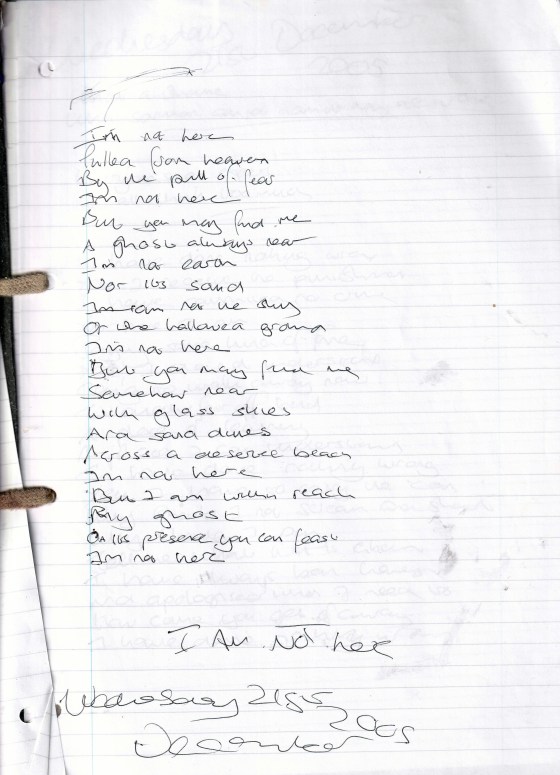 I'm not here
Pulled from heaven
By the pull of fear
I'm not here
But you may find me
A ghost always near
I'm not earth
Nor its sand
I'm not the sky
Or the hallowed ground
I'm not here
But you may find me
Somehow near
With glass skies
And sand dunes
Across a deserted beach
I'm not here
But I am within reach
My ghost
On its presence you can feast
I'm not here
I Am Not here
Wednesday 21st
December 2005